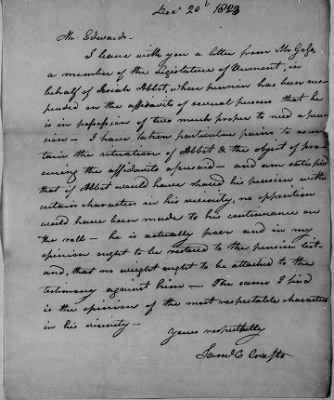 Decr 20t 1823
Mr Edwards -
I leave with you a letter from Mr Gage
a member of the Legislature of Vermont, in
behalf of Isaiah Abbot, whose pension has been sus-
pended on the affidavits of several persons that he
is in possession of too much proper to need a pen-
sion - I have taken particular pains to ascer-
tain the situation of Abbot & the object of pro-
curing the affidavits aforesaid - and am satisfied
that if Abbot would have shared his pension with
certain characters in his vicinity, no opposition
would have been made to his continuance on
the roll - he is actually poor and in my
opinion ought to be restored to the pension list
and, that no weight ought to be attached to the
testimony against him - The same I find
is the opinion of the most respectable characters
in his vicinity -
Yours respectfully
Saml C Crafts